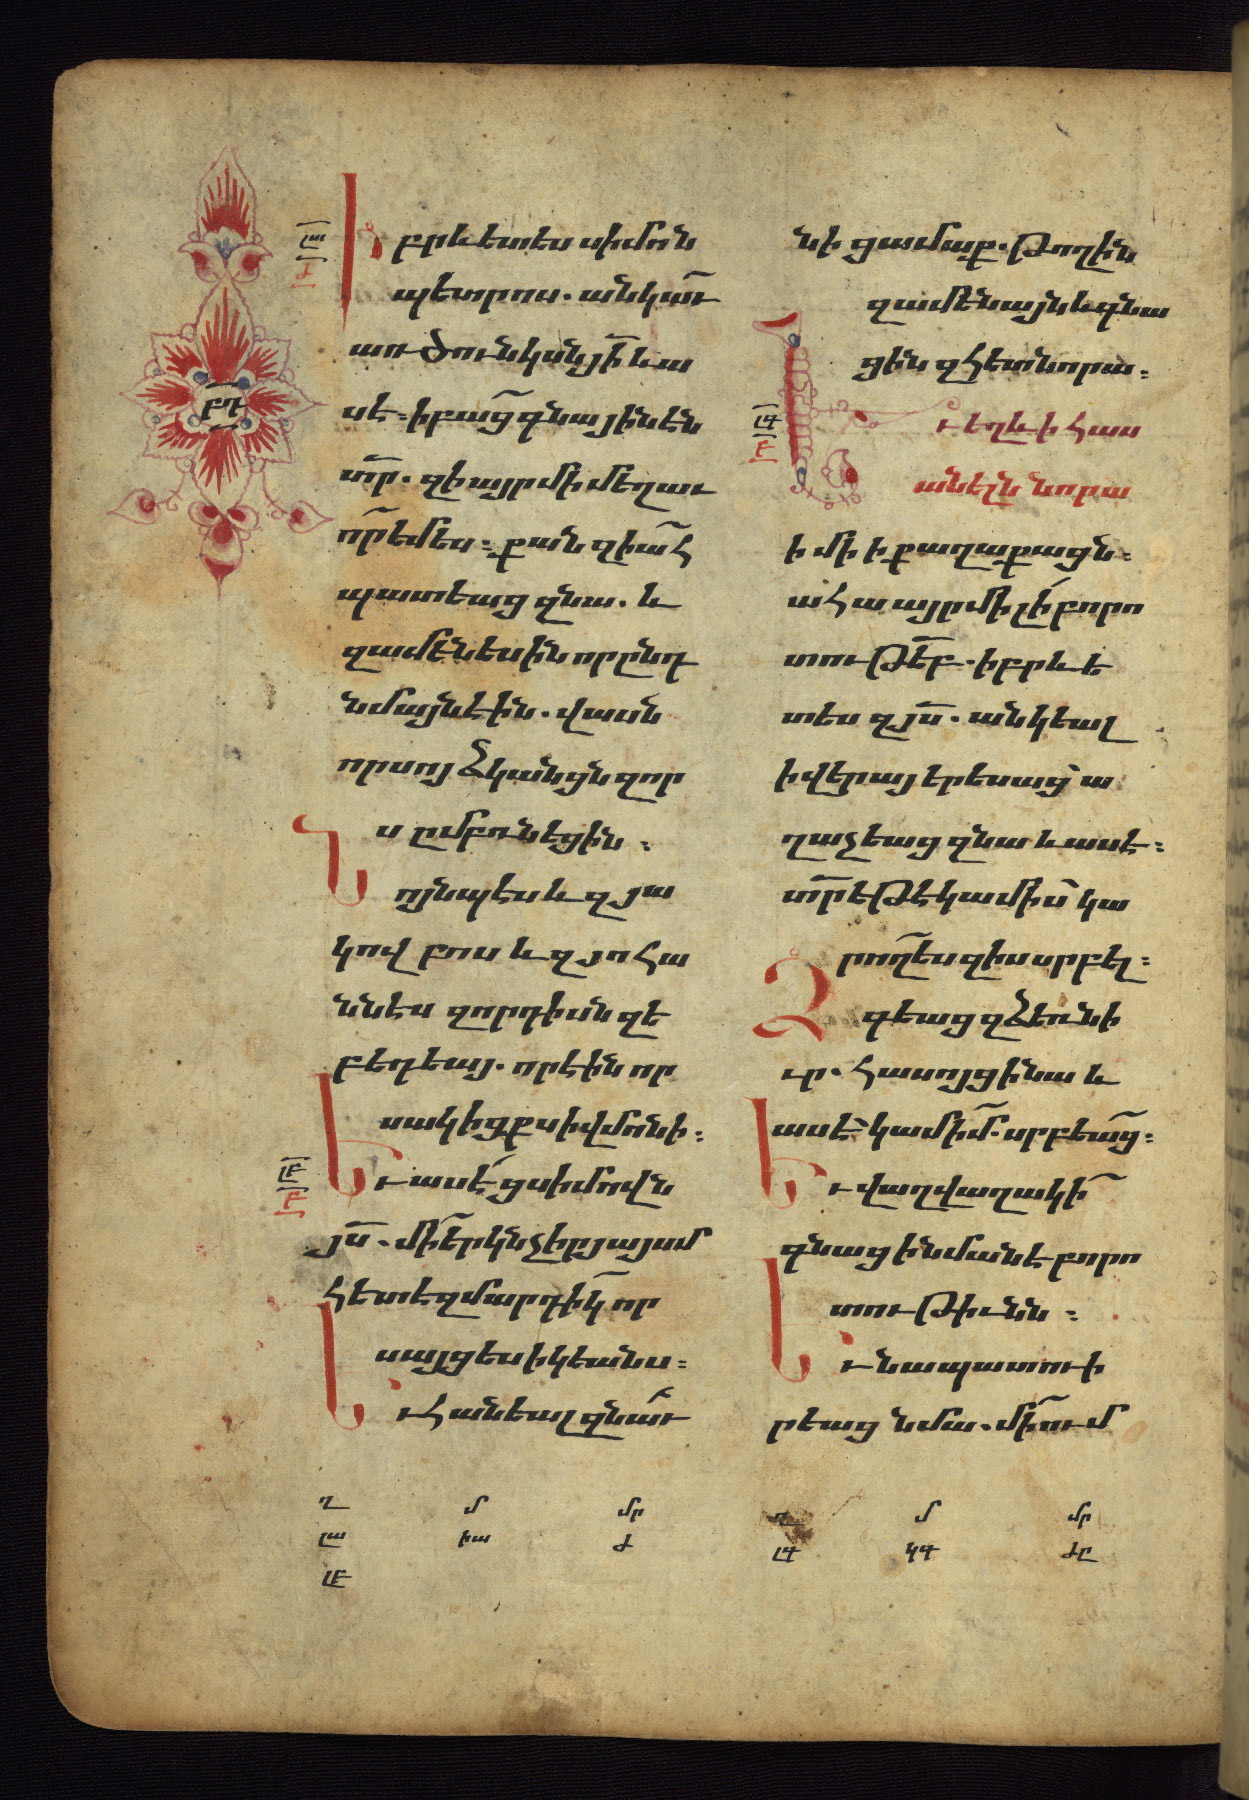 լա
Ժ
Իբրև ետես սիմոն
պետրոս. անկաւ
առ ծունկսն յի և ա
սէ։ ի բաց գնա յինէն
տր. զի այր մի մեղաւ
որ եմ ես։ քանզի ահ
պատեաց զնա. և
զամենեսին որ ընդ
նմայն էին. վասն
որսոյ ձկանցն զոր
ս ըմբռնեցին։
Նոյնպես և զյա
կովբոս և զյոհա
ննես զորդիսն զե
բեդեայ. որ էին որ
սակիցք սիվմոնի։
լբ
Բ
Եւ ասե ցսիմովն
յս. մի երկնչիք յայսմ
հետե զմարդիկ որ
սայցես ի կեանս։
Եւ հանեալ զնաւ
բդ
նի ցամաք. թողին
զամենայն և գնա
ցին զհետ նորա։
լգ
Բ
Եւ եղև ի հաս
անելն նորա
ի մի ի քաղաքացն։
ահա այր մի լի բորո
տութեբ. իբրև ե
տես զյս. անկեալ
ի վերայ երեսաց ա
ղաչեաց զնա և ասէ։
տր եթե կամիս կա
րող ես զիս սրբել։
Ձգեաց զձեռն ի
ւր. հասոյց ի նա և
ասէ կամիմ. սրբեաց։
Եւ վաղվաղակի
գնաց ի նմանե բորո
տութիւնն։
Եւ նա պատուի
րեաց նմա. մի ում
ղ մ մր
լա իա Ժ
լբ
ղ մ մր
լգ կգ ԺԸ